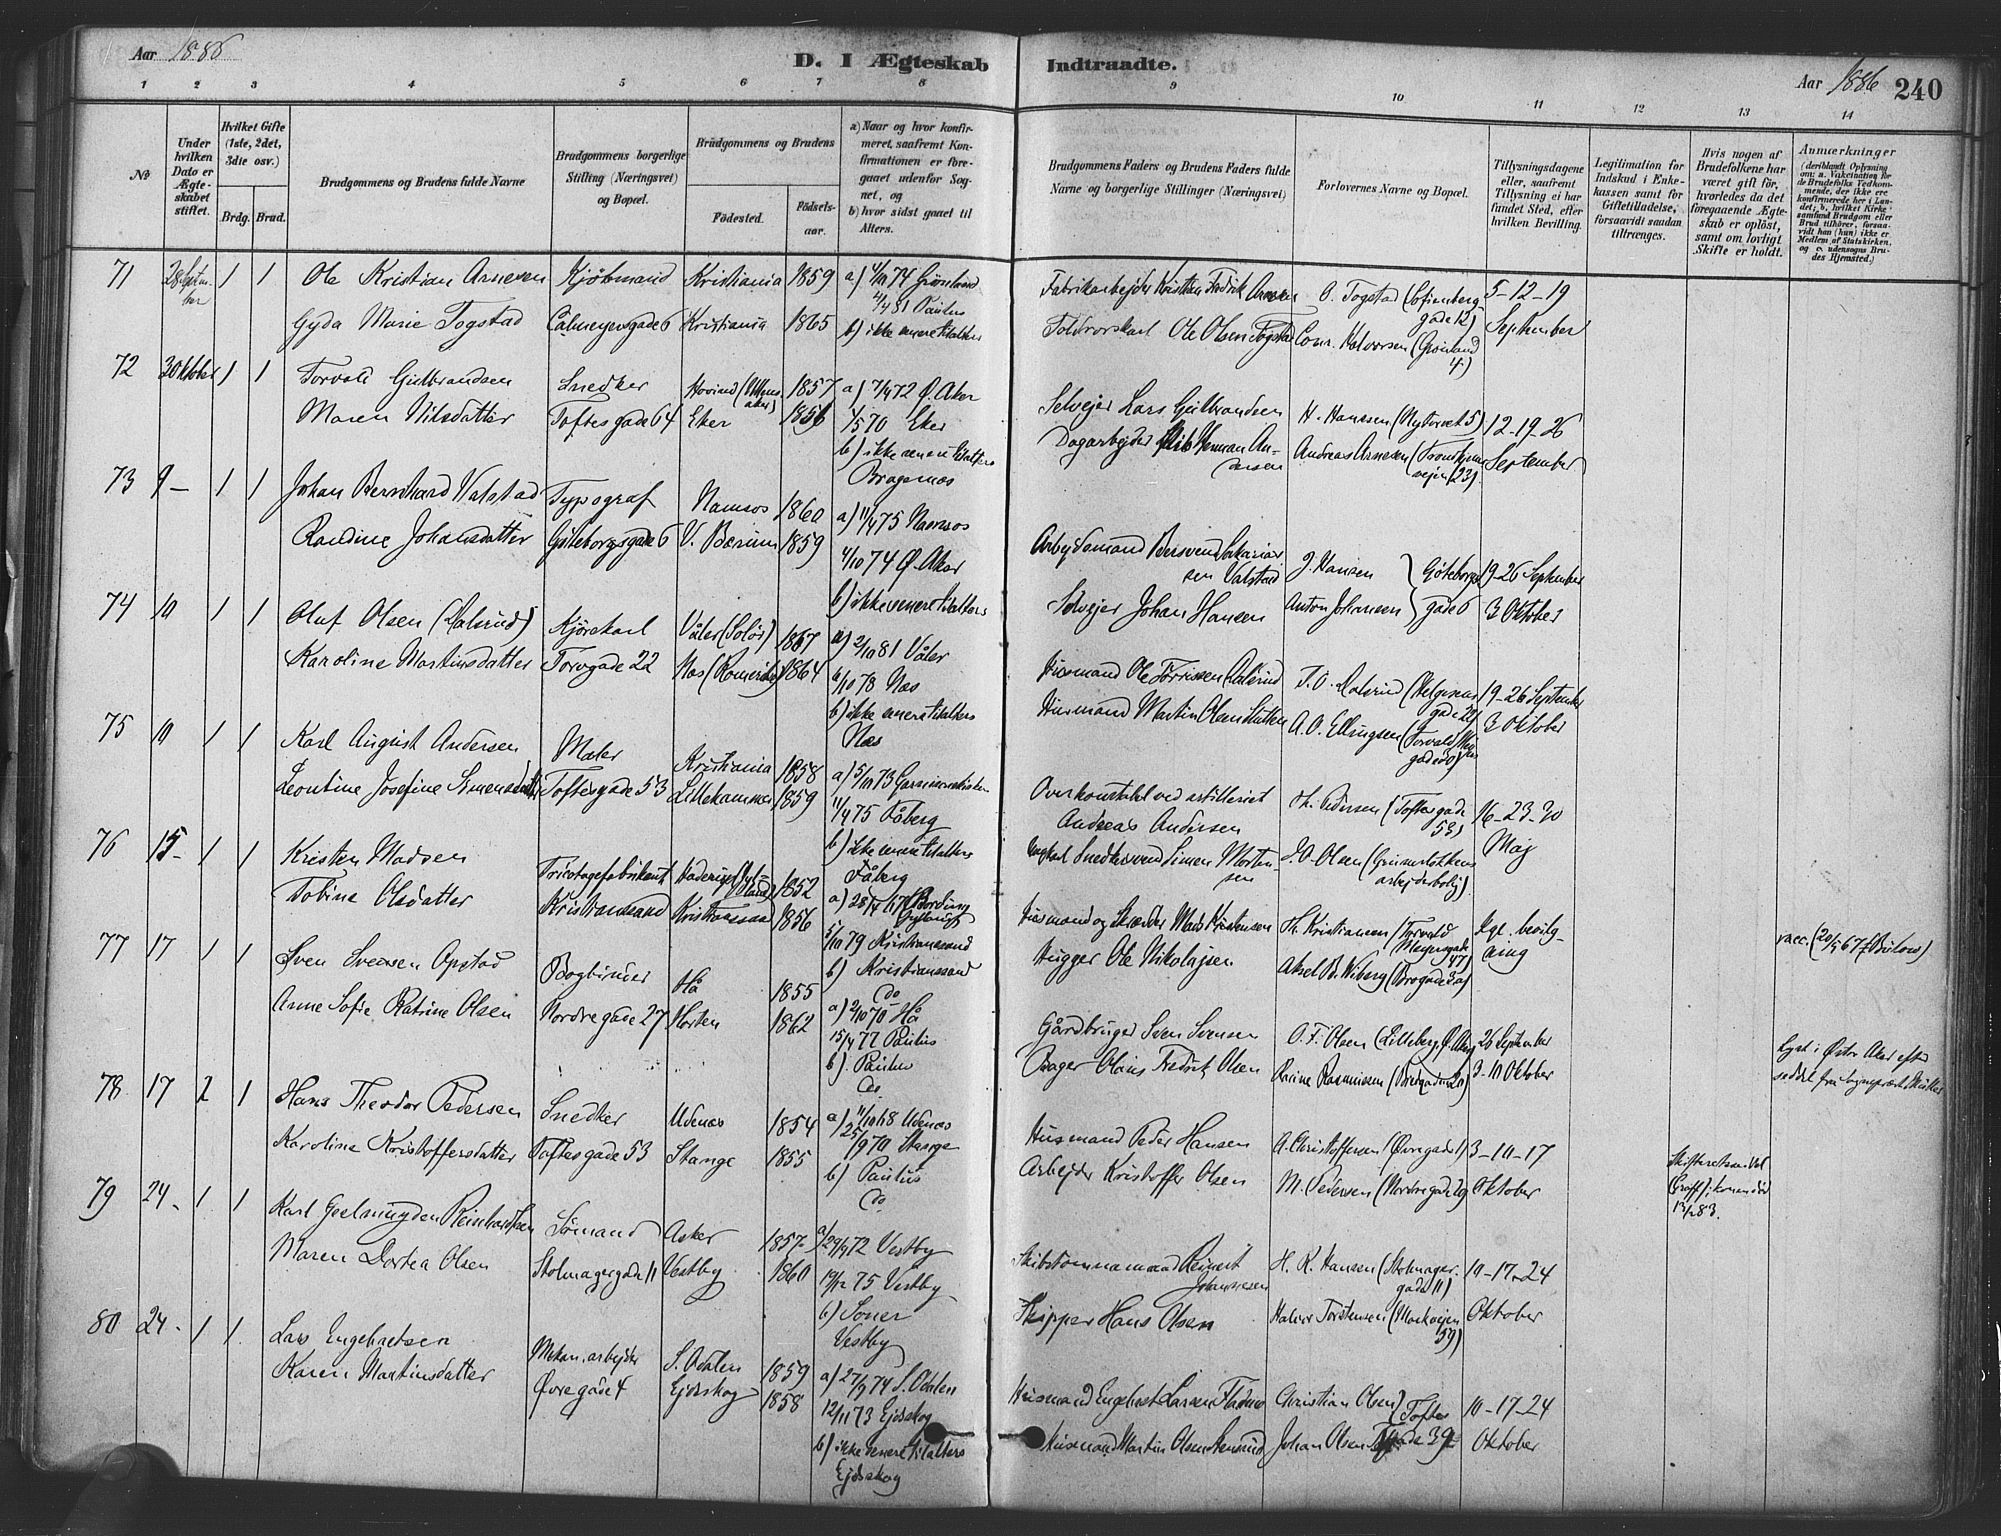 Aar 1886
D. I Ægteskab Indtraadte.
Aar 1886 240
1 2 3 4 5 6 7 8 9 10 11 12 13 14
No
Under hvilken Dato er Ægteskabet stiftet.
Hvilket Gifte (1ste, 2det, 3die osv.)
Brdg. Brud.
Brudgommens og Brudens fulde Navne
Brudgommens borgerlige Stilling (Næringsvei) og Bopæl.
Brudgommens og Brudens
Födested.
Födsels-aar.
a) Naar og hvor konfirmeret, saafremt Konfirmationen er foregaaet udenfor Sognet, og
b) hvor sidst gaaet til Alters.
Brudgommens Faders og Brudens Faders fulde Navne og borgerlige Stillinger (Næringsvei)
Forlovernes Navne og Bopæl.
Tillysningsdagene eller, saafremt Tillysning ei har fundet Sted, efter hvilken Bevilling.
Legitimation for Indskud i Enkekassen samt for Giftetilladelse, forsaavidt saadan tiltrænges.
Hvis nogen af Brudefolkene har været gift för, hvorledes da det foregaaende Ægteskab er oplöst, samt om lovligt Skifte er holdt.
Anmærkninger
(deriblandt Oplysning om: a. Vakcination for de Brudefolks Vedkommende, der ikke ere konfirmerede her i Landet; b. hvilket Kirkesamfund Brudgom eller Brud tilhörer, forsaavidt han (hun) ikke er Medlem af Statskirken, og c. udensogns Brudes Hjemsted.)
71 28 September 1 1 Ole Kristian Arnesen Kjöbmand Kristiania 1859 a) 4/10 74 Grönland
Fabrikarbejder Kristian Fredrik Arnesen O. Togstad (Sofienberggade 12) 5-12-19
Gyda Marie Togstad Calmeyersgade 6 Kristiania 1865 2/4 81 Paulus
b) ikke senere til alters
Toldvorskarl Ole Olsen Togstad Conr. Halvorsen (Grönland 4) September
72 3 Oktober 1 1 Torvald Gulbrandsen Snedker Hovind (Ullensaker) 1857 a) 7/4 72 Ø. Aker
Selvejer Lars Gulbrandsen H. Hanssen (Nytorvet 5) 12-19-26
Maren Nilsdatter Toftesgade 64 Eker 1856 1/5 70 Eker
b) ikke senere til alters
Bragernæs
Dagarbejder Nils Herman Andersen Andreas Arnesen (Trondhjemsvejen 23) September
73 9 - 1 1 Johan Bernhard Valstad Typograf Namsos 1860 a) 11/4 75 Namsos
Arbejdsmand Bersvend Sakariassen Valstad J. Hansen 19-26 September
Randine Johansdatter Göteborgsgade 6 V. Bærum 1859 4/10 74 Ø. Aker
b) ikke senere til alters
Selvejer Johan Hansen Anton Johansen Göteborgsgade 6 3 Oktober
74 10 1 1 Oluf Olsen (Kalsrud) Kjörekarl Våler (Solör) 1867 a) 2/10 81 Våler
Husmand Ole Torrissen Kalsrud T. O. Kalsrud (Helgesensgade 20) 19-26 September
Karoline Martinsdatter Torvgade 22 Næs (Romerike) 1864 6/10 78 Næs
b) ikke senere til alters
Næs
Husmand Martin Olsen A. O. Ellingsen (Torvald Meyersgade) 3 Oktober
75 10 1 1 Karl August Andersen Maler Kristiania 1858 a) 5/10 73 Garnisonskirken
Overkonstabel ved artilleriet Andreas Andersen Th. Pedersen (Toftesgade 53) 16-23-30
Leontine Josefine Simensdatter Toftesgade 53 Lillehammer 1859 11/4 75 Fåberg
b) ikke senere til alters
Fåberg
Snedkersvend Simen Mortensen J. O. Olsen (Grünerløkkens arbejderbolig) Maj
76 15- 1 1 Kristen Madsen Tricotagefabrikant Haderup (Jylland) 1852 a) 28/4 67 Bording
Husmand og Skrædder Mads Kristensen Th. Kristiansen (Torvald Meyersgade 47) Kgl. bevilgning
Tobine Olsdatter Kristianssand Kristianssand 1856 5/10 79 Kristianssand
b) Kristianssand
do
Hugger Ole Nikolajsen Aksel B. Wiberg (Brogade 3a)
vacc. (20/5 67
77 17 1 1 Sven Svensen Opstad Bogbinder Hå 1855 a) 2/10 70 Hå
Gårdbruger Sven Svensen O. F. Olsen (Lilleberg, Ø. Aker) 26 September
Anne Sofie Katrine Olsen Nordregade 27 Horten 1862 15/4 77 Paulus
b) Paulus
do
Bager Olaus Fredrik Olsen Rasmussen (Bredgade 20) 3-10 Oktober
lyst i Østre Aker efter
78 17 2 1 Hans Theodor Pedersen Snedker Udenæs 1854 a) 11/10 68 Udenæs
Husmand Peder Hansen A. Christoffersen (Øvregade 1) 3-10-17
Karoline Kristoffersdatter Toftesgade 53 Stange 1855 25/9 70 Stange
b) Paulus
do
Arbejder Kristoffer Olsen M. Pedersen (Nordregade 29) Oktober
13/2 83.
79 24- 1 1 Karl Geelmuyden Reinhardtsen Sömand Asker 1857 a) 29/9 72 Vestby
Skibstömmermand Reinert Johannesen H. K. Hansen (Stolmagergade 11) 10-17-24
Maren Dortea Olsen Stolmagergade 11 Vestby 1860 19/12 75 Vestby
b) Soner
Vestby
Skipper Hans Olsen Halvor Torstensen (Markvejen 59) Oktober
80 24- 1 1 Lars Engebretsen Mekan. arbejder S. Odalen 1859 a) 27/9 74 S. Odalen
Husmand Engebret Larsen Christian Olsen 10-17-24
Karen Martinsdatter Øvregade 4 Ejdskog 1858 12/11 73 Ejdskog
b) ikke senere til alters
Ejdskog
Husmand Martin Olsen Johan Olsen Toftesgade 39 Oktober